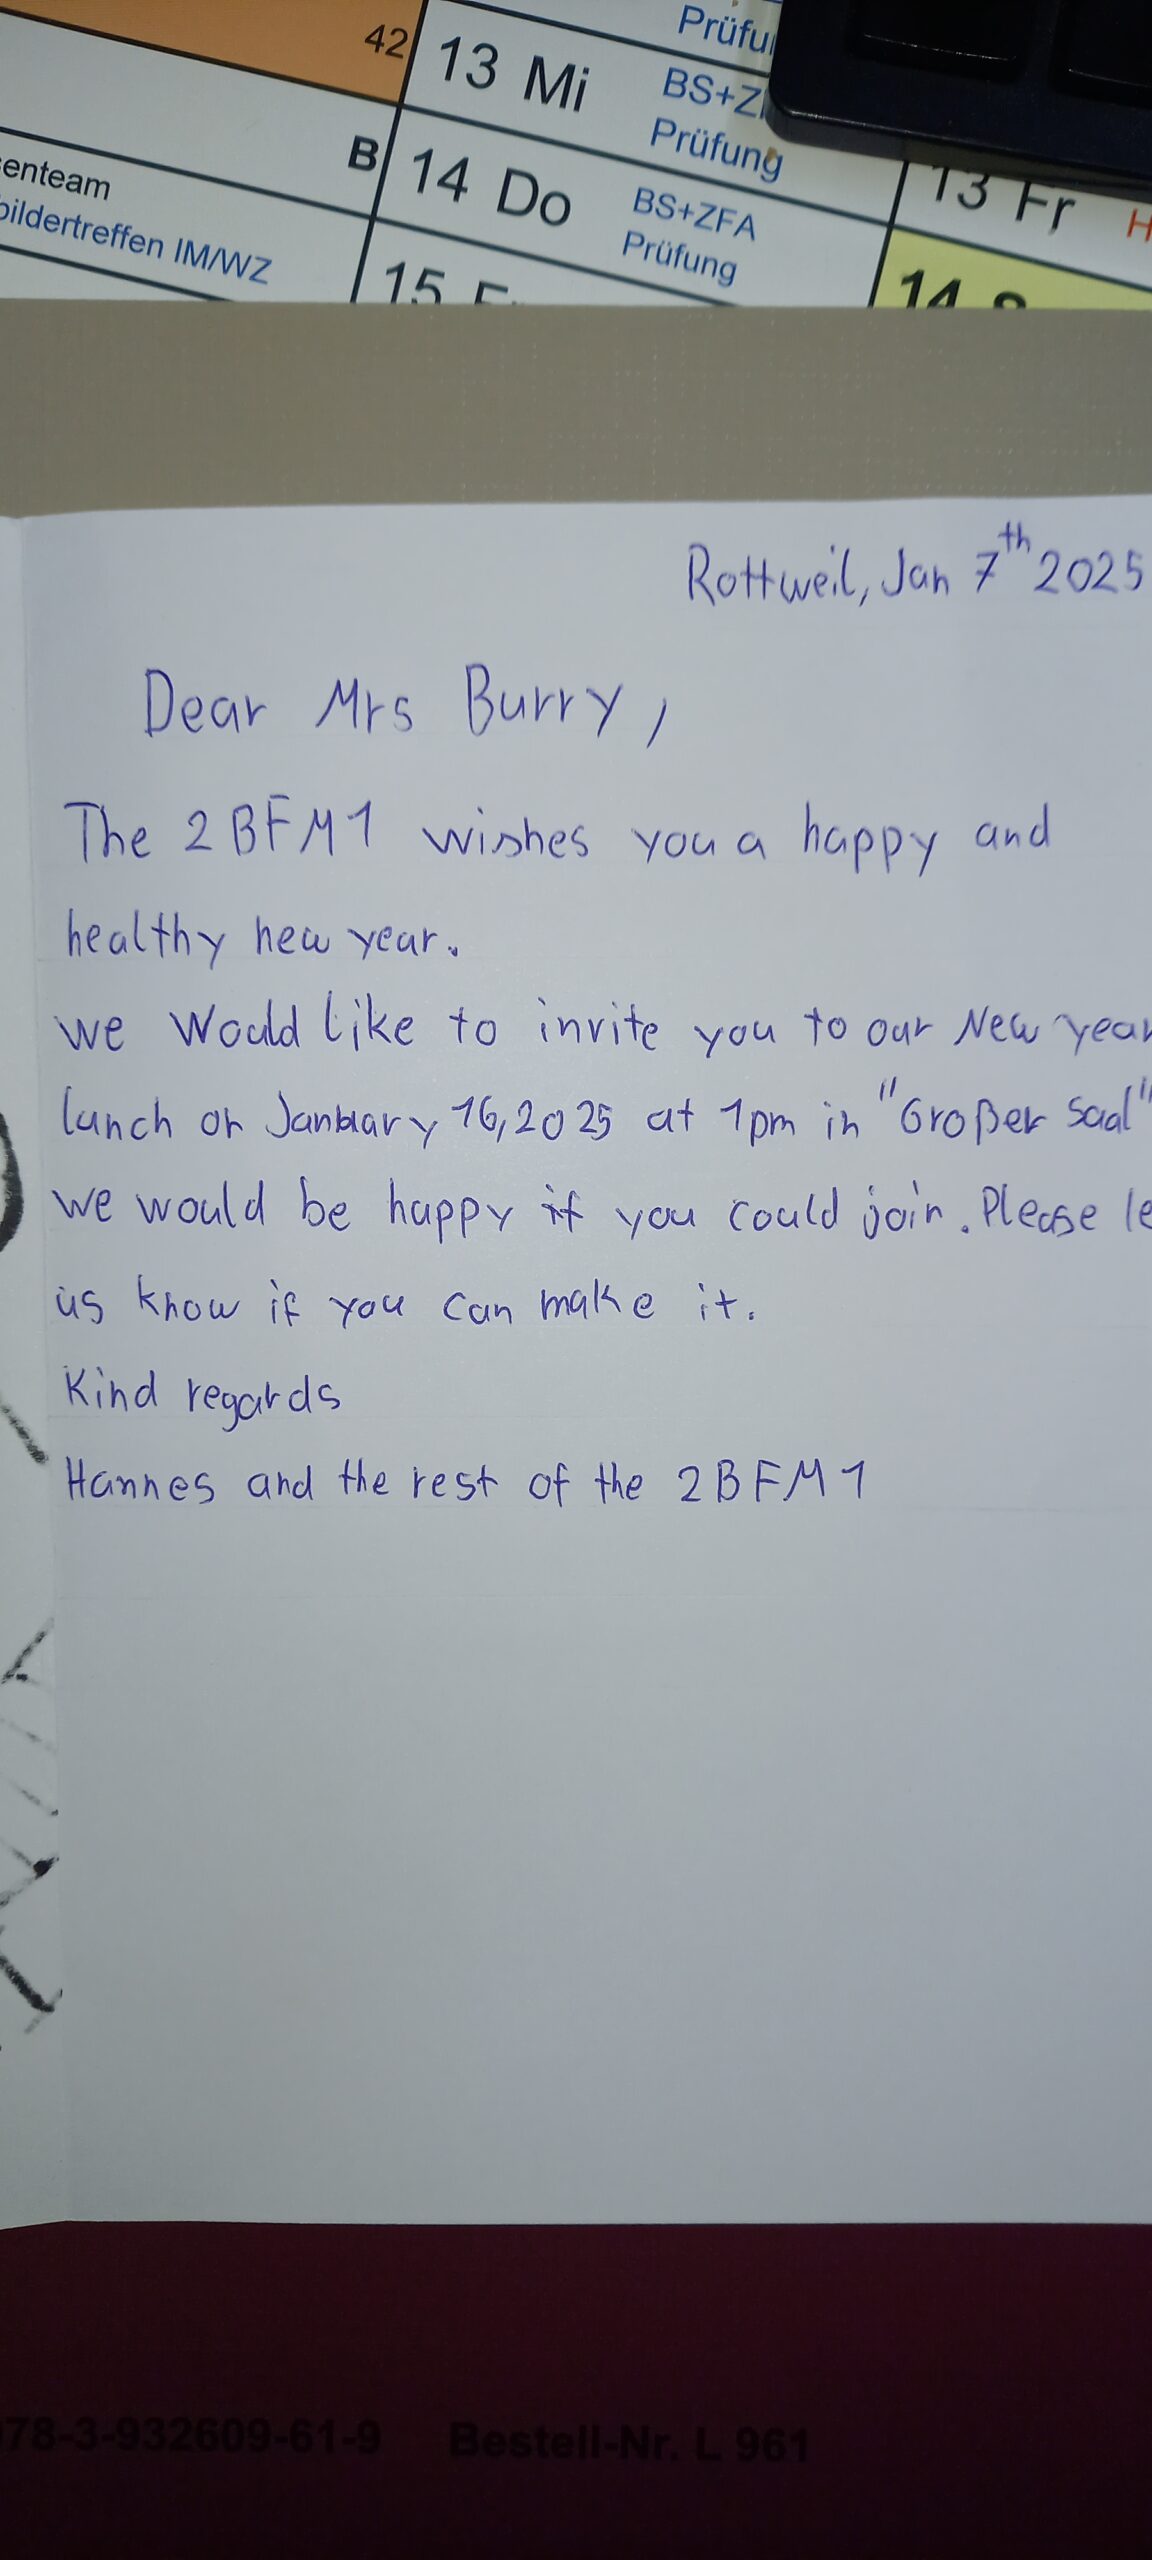 Prüfu
42 13 Mi BS+Z
Prüfung
B 14 Do BS+ZFA
Prüfung
enteam
bildertreffen IM/WZ
15
13 Fr H
14
Rottweil, Jan 7th 2025
Dear Mrs Burry,
The 2BFM1 wishes you a happy and
healthy new year.
we would like to invite you to our New year
lunch on January 16, 2025 at 1pm in "Großer Saal"
we would be happy if you could join. Please le
us know if you can make it.
Kind regards
Hannes and the rest of the 2BFM1
978-3-932609-61-9 Bestell-Nr. L 961